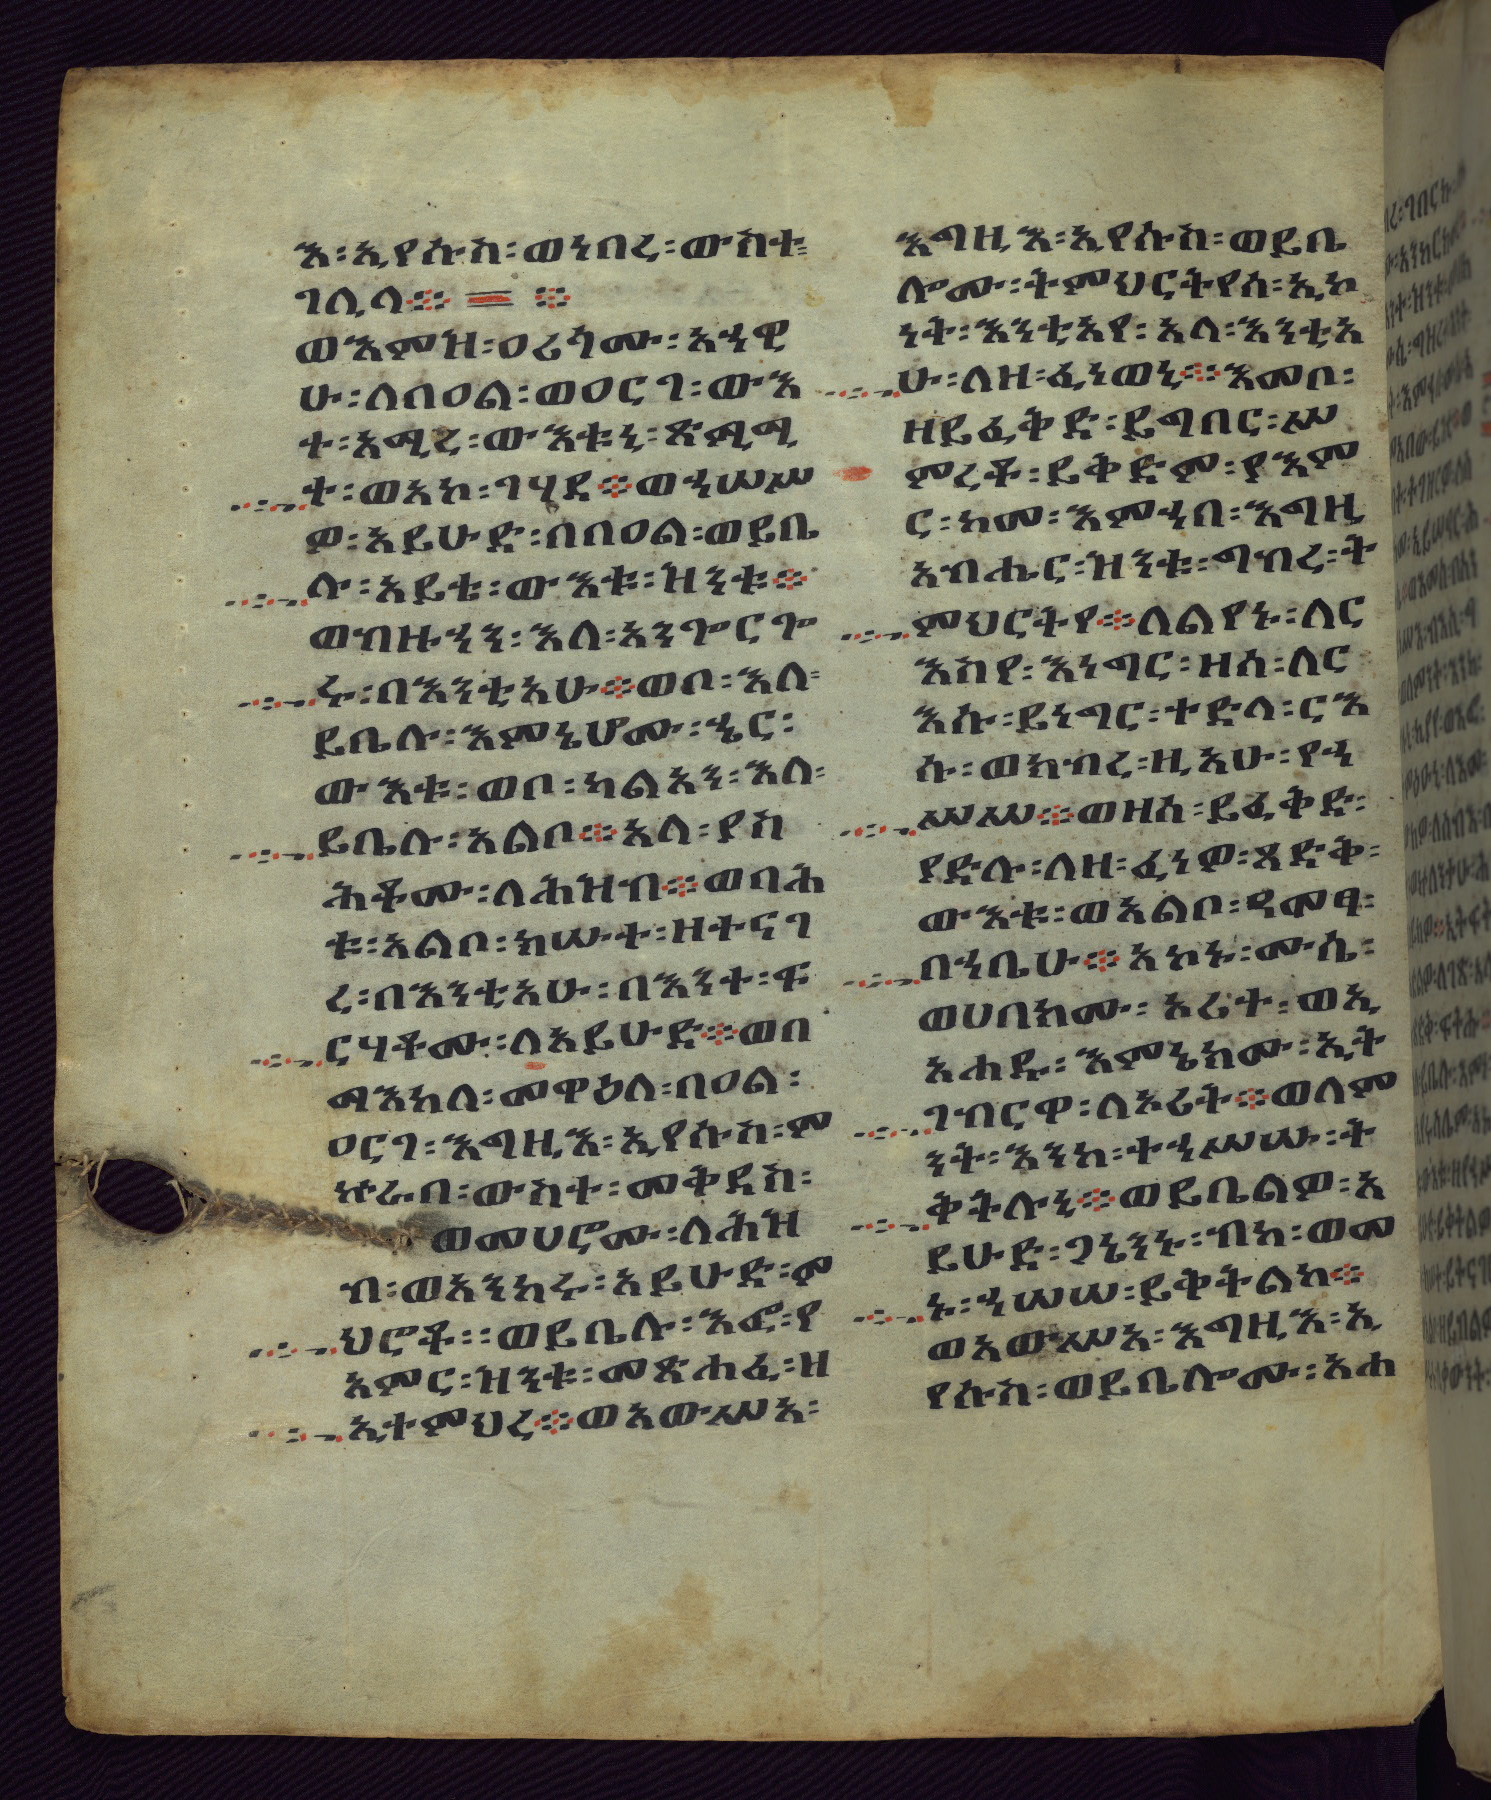 እ፡ኢየሱስ፡ወነበረ፡ውስተ፡
ገሊላ፨ ፨
ወእምዝ፡ዐሪጎሙ፡አኃዊ
ሁ፡ለበዐል፡ወዐርገ፡ውእ
ተ፡አሚረ፡ውእቱኒ፡ጽሚሚ
ተ፡ወአኮ፡ገሃደ፨ወኃሠሥ
ዎ፡አይሁድ፡በበዐል፡ወይቤ
ሉ፡አይቴ፡ውእቱ፡ዝንቱ፨
ወብዙኃን፡እለ፡አንጐርጐ
ሩ፡በእንቲአሁ፨ወቦ፡እለ፡
ይቤሉ፡እምኔሆሙ፡ኄር፡
ውእቱ፡ወቦ፡ካልአን፡እለ፡
ይቤሉ፡አልቦ፨አላ፡ያስ
ሕቶሙ፡ለሕዝብ፨ወባሕ
ቱ፡አልቦ፡ክሡተ፡ዘተናገ
ረ፡በእንቲአሁ፡በእንተ፡ፍ
ርሃቶሙ፡ለአይሁድ፨ወበ
ማእከለ፡መዋዕለ፡በዐል፡
ዐርገ፡እግዚእ፡ኢየሱስ፡ም
ኵራበ፡ውስተ፡መቅደስ፡
ወመሀሮሙ፡ለሕዝ
ብ፡ወአንከሩ፡አይሁድ፡ም
ህሮቶ፡፡ወይቤሉ፡እፎ፡የ
አምር፡ዝንቱ፡መጽሐፈ፡ዘ
ኢተምህረ፨ወአውሥአ፡
እግዚእ፡ኢየሱስ፡ወይቤ
ሎሙ፡ትምህርትየሰ፡ኢኮ
ነት፡እንቲአየ፡አላ፡እንቲአ
ሁ፡ለዘ፡ፈነወኒ፨እመቦ፡
ዘይፈቅድ፡ይግበር፡ሥ
ምረቶ፡ይቅድም፡ያእም
ር፡ከመ፡እምኀበ፡እግዚ
አብሔር፡ዝንቱ፡ግብረ፡ት
ምህርትየ፨ለልየኑ፡ለር
እስየ፡እነግር፡ዘሰ፡ለር
እሱ፡ይነግር፡ተድላ፡ርእ
ሱ፡ወክብረ፡ዚአሁ፡የኃ
ሥሥ፨ወዘሰ፡ይፈቅድ፡
ያድሉ፡ለዘ፡ፈነዎ፡ጻድቅ፡
ውእቱ፡ወአልቦ፡ዓመፃ፡
በኀቤሁ፨አኮኑ፡ሙሴ፡
ወሀበክሙ፡ኦሪተ፡ወኢ
አሐዱ፡እምኔክሙ፡ኢት
ገብርዋ፡ለኦሪት፨ወለም
ንት፡እንከ፡ተኃሥሡ፡ት
ቅትሉኒ፨ወይቤልዎ፡አ
ይሁድ፡ጋኔንኑ፡ብከ፡ወመ
ኑ፡ኃሠሠ፡ይቅትልከ፨
ወአውሥአ፡እግዚእ፡ኢ
የሱስ፡ወይቤሎሙ፡አሐ